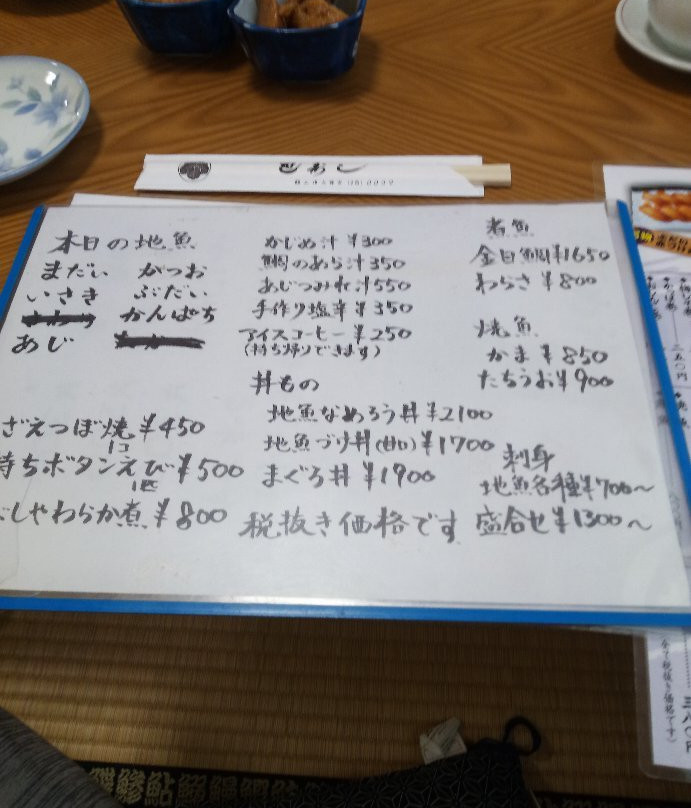 本日の地魚
まだい かつお
いさき ぶだい
かんぱち
あじ
ざえつぼ焼 ¥450
1コ
持ちボタンえび ¥500
1匹
しやわらか煮 ¥800
かじめ汁 ¥300
鯛のあら汁 350
あじつみれ汁 550
手作り塩辛 ¥350
アイスコーヒー ¥250
(持ち帰りできます)
丼もの
地魚なめろう丼 ¥2100
地魚づけ丼(甘口) ¥1700
まぐろ丼 ¥1900
税抜き価格です
煮魚
金目鯛 ¥1650
わらさ ¥800
焼魚
かま ¥850
たちうお ¥900
刺身
地魚各種 ¥700〜
盛合せ ¥1300〜
二五〇円
(全て税抜き価格です)
三八〇円